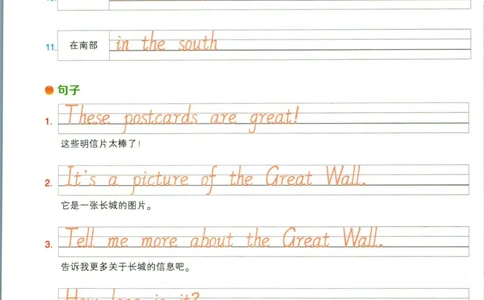 11. 在南部 in the south
句子
1. These postcards are great!
这些明信片太棒了!
2. It's a picture of the Great Wall.
它是一张长城的图片。
3. Tell me more about the Great Wall.
告诉我更多关于长城的信息吧。
How long is it?